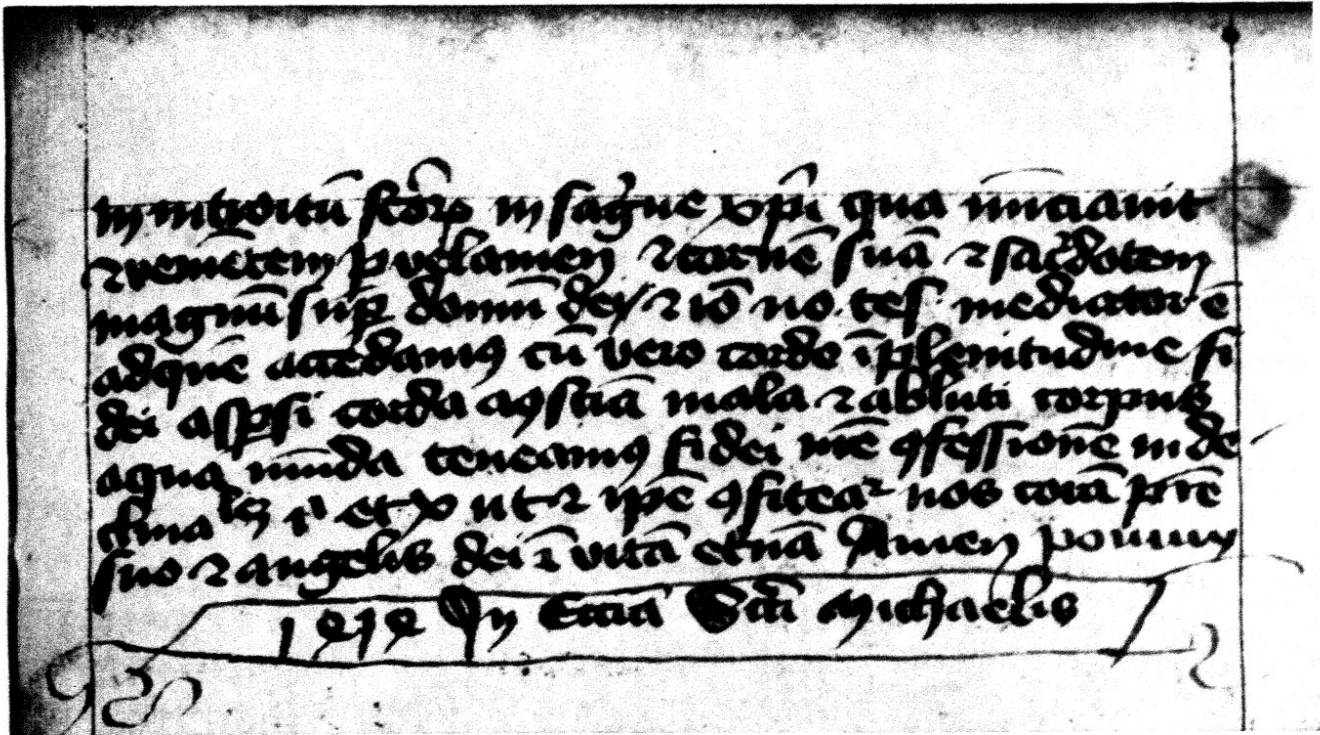 in introitū scōꝝ in sāgue xp̄i qua īnitiauit
⁊ veniētem p velamen ⁊ carnē suā ⁊ sacᵉdotem
magnū sup̲ domū dei / ⁊ iō no. tes. mediator ē
ad quē accedamꝰ cū vero corde ī plenitudine fi
dei asp̲si corda a ꝯsciā mala ⁊ abluti corpus
aqua mūda teneamꝰ fidei nr̄e ꝯfessionē inde
clina ⁊ ut ⁊ ip̄e ꝯfiteaᷣ nos corā pr̄e
suo ⁊ angelis dei ī vitā et̄nā Amen
1414 In Ecciā Scī Michaelis